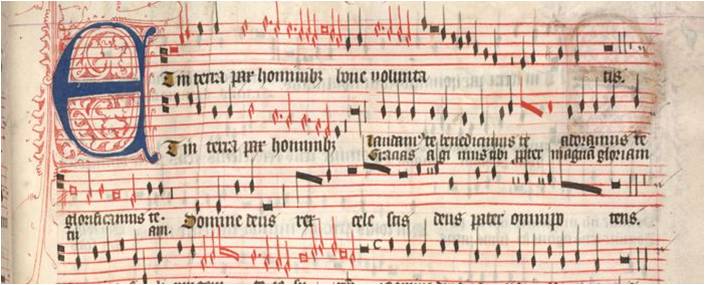 Et in terra pax hominibȝ bone volunta tis.
Et in terra pax hominibȝ laudamꝰ te benedicimus te adoramus te
Gracias agimus tibi ꝓpter magnā gloriam
glorificamus te. Domine deus rex cele stis deus pater omnipo tens.
tu am.